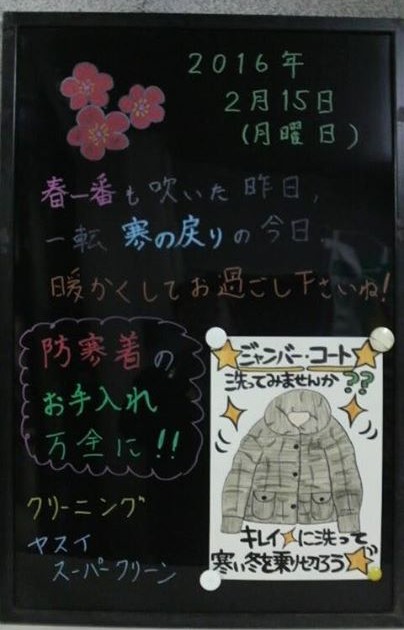 2016年
2月15日
(月曜日)
春一番も吹いた昨日,
一転 寒の戻りの今日.
暖かくしてお過ごし下さいね!
防寒着の
お手入れ
万全に!!
クリーニング
ヤスイ
スーパークリーン
ジャンバー・コート
洗ってみませんか??
キレイに洗って
寒い冬を乗り切ろう